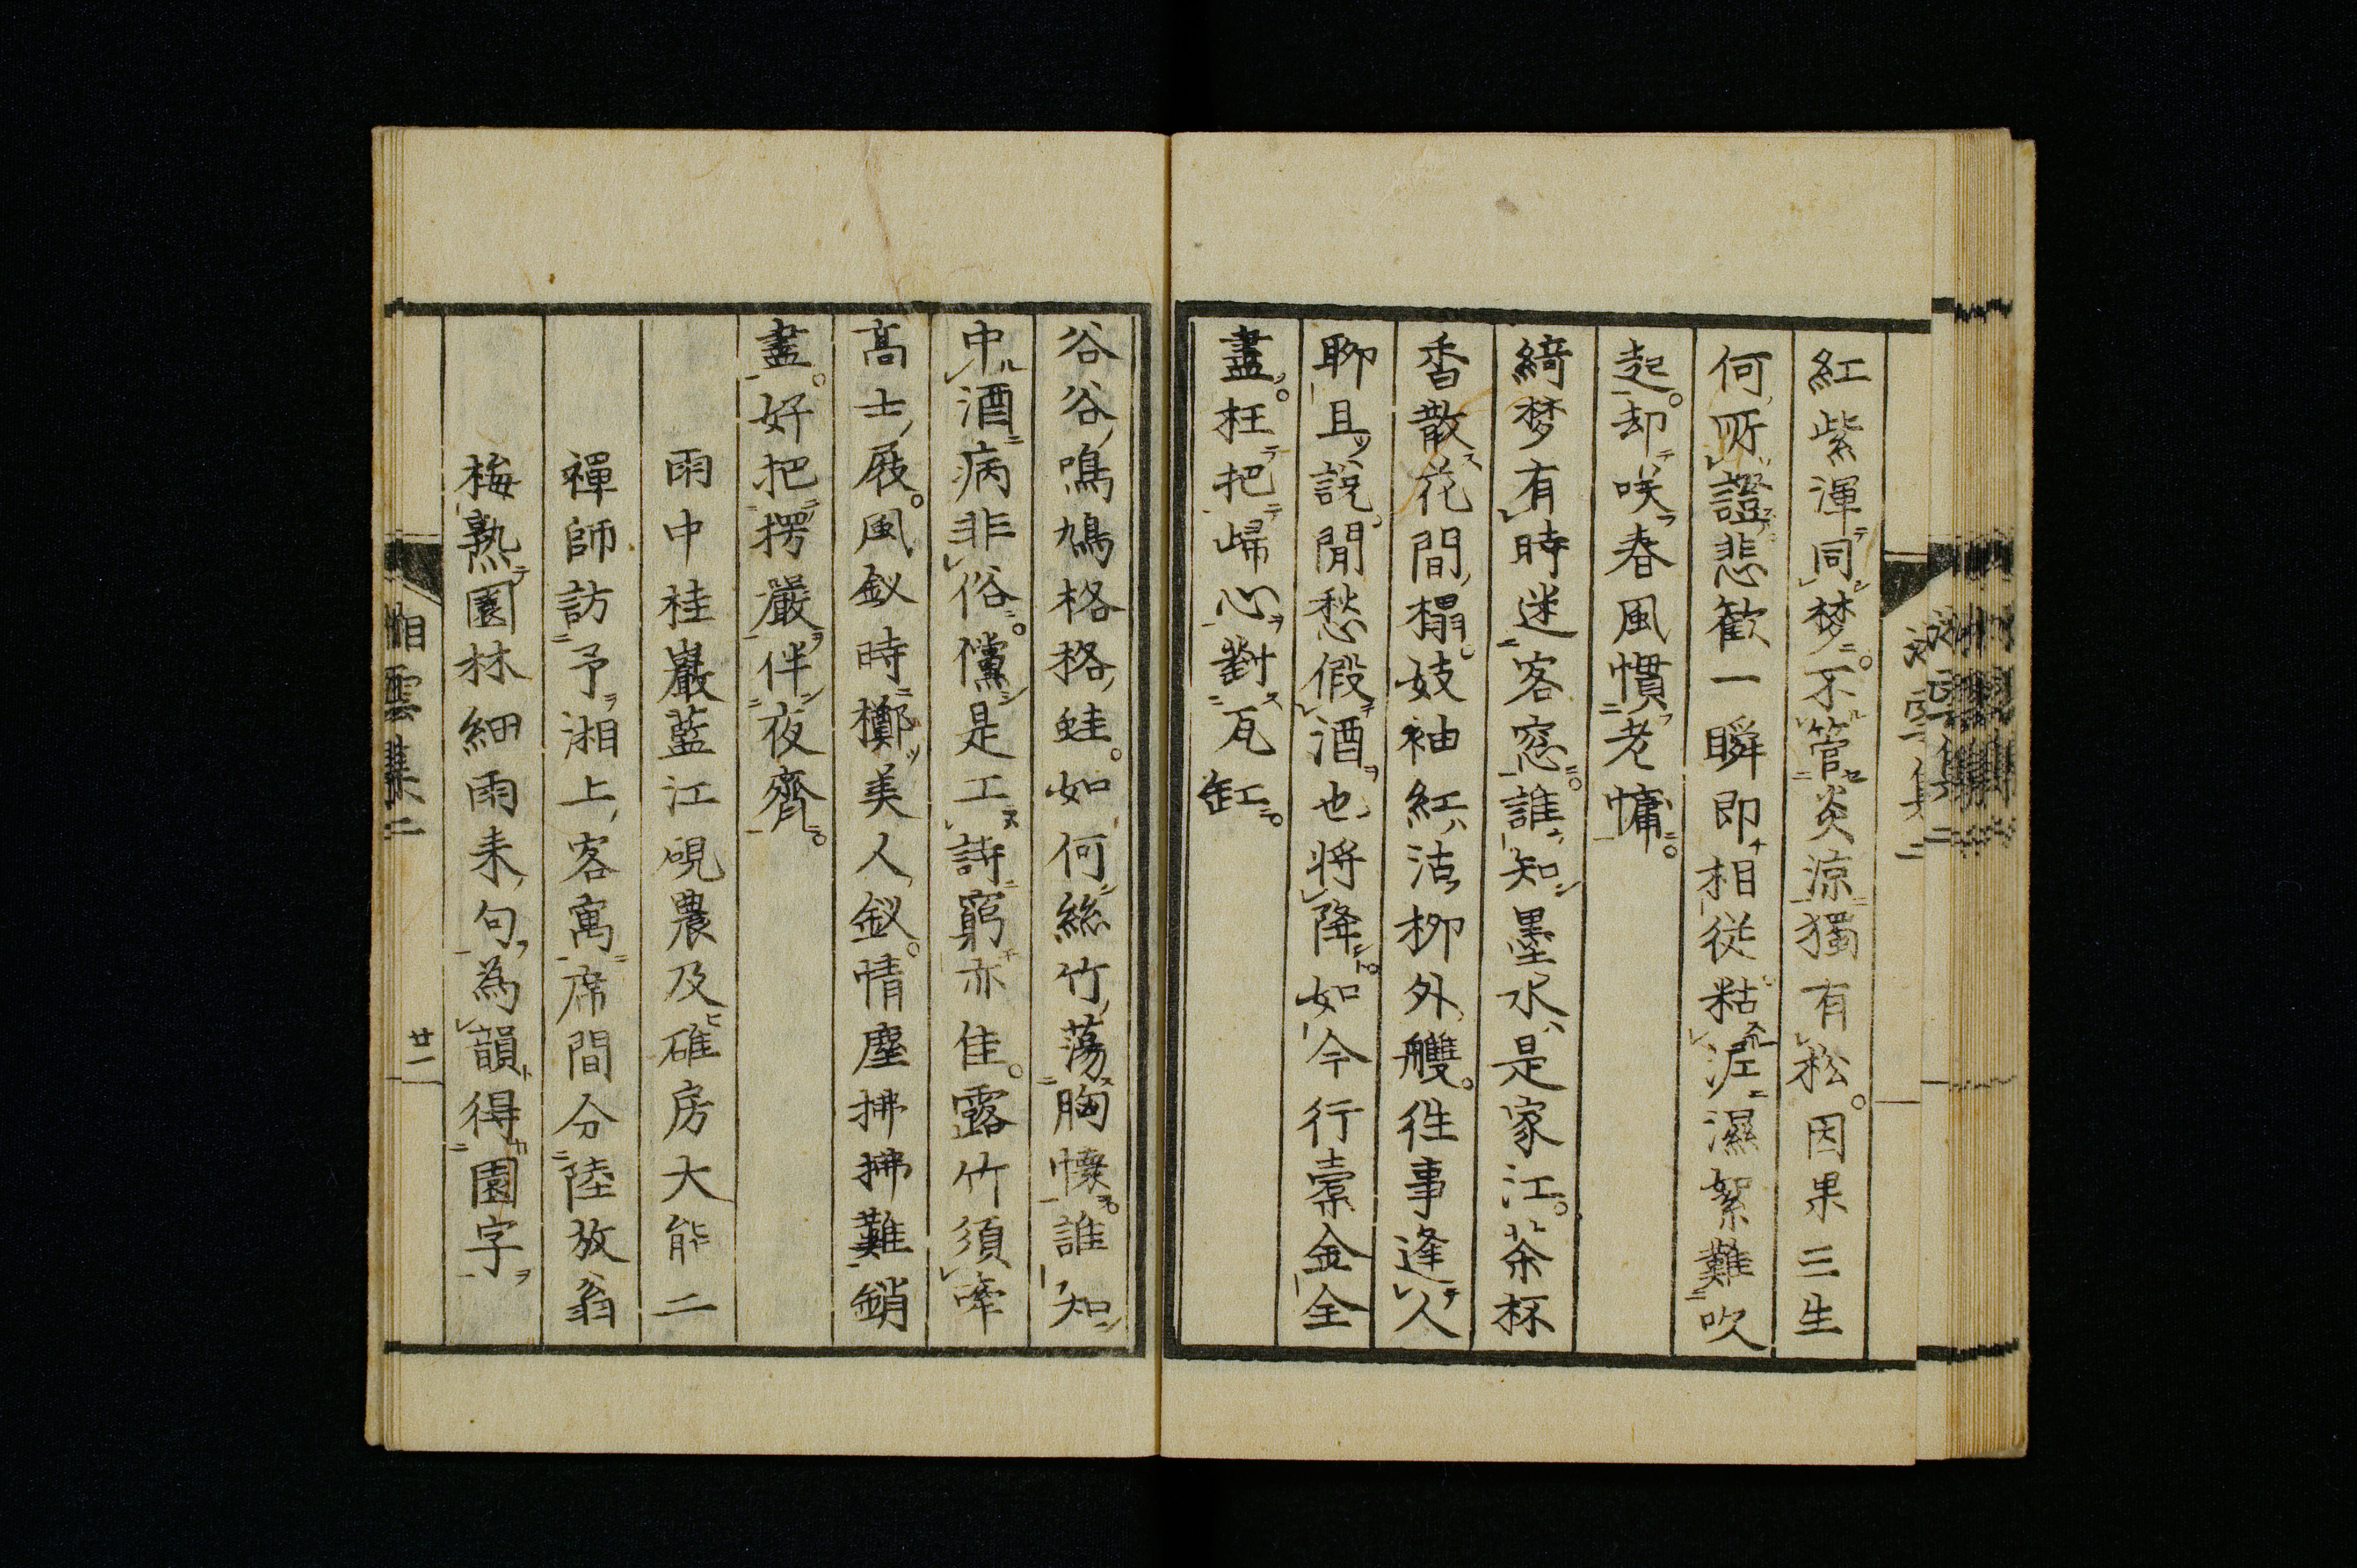 紅紫渾同梦不管炎涼獨有松因果三生
何所證悲歡一瞬即相従粘泥濕絮難吹
起却咲春風慣老慵
綺梦有時迷客窓誰知墨水是家江茶杯
香散花間榻妓袖紅沾柳外艭徃事逢人
聊且說閒愁假酒也將降如今行橐金全
盡枉把歸心對瓦缸
谷谷鳴鳩格格蛙如何絲竹蕩胸懐誰知
中酒病非俗儻是工詩窮亦佳露竹須牽
高士屐風釵時擲美人釵情塵拂拂難銷
盡好把楞嚴伴夜齋
雨中桂巖藍江硯農及碓房大能二
禪師訪予湘上客寓席間分陸放翁
梅熟園林細雨来句為韻得園字
湘雲集二
廿一